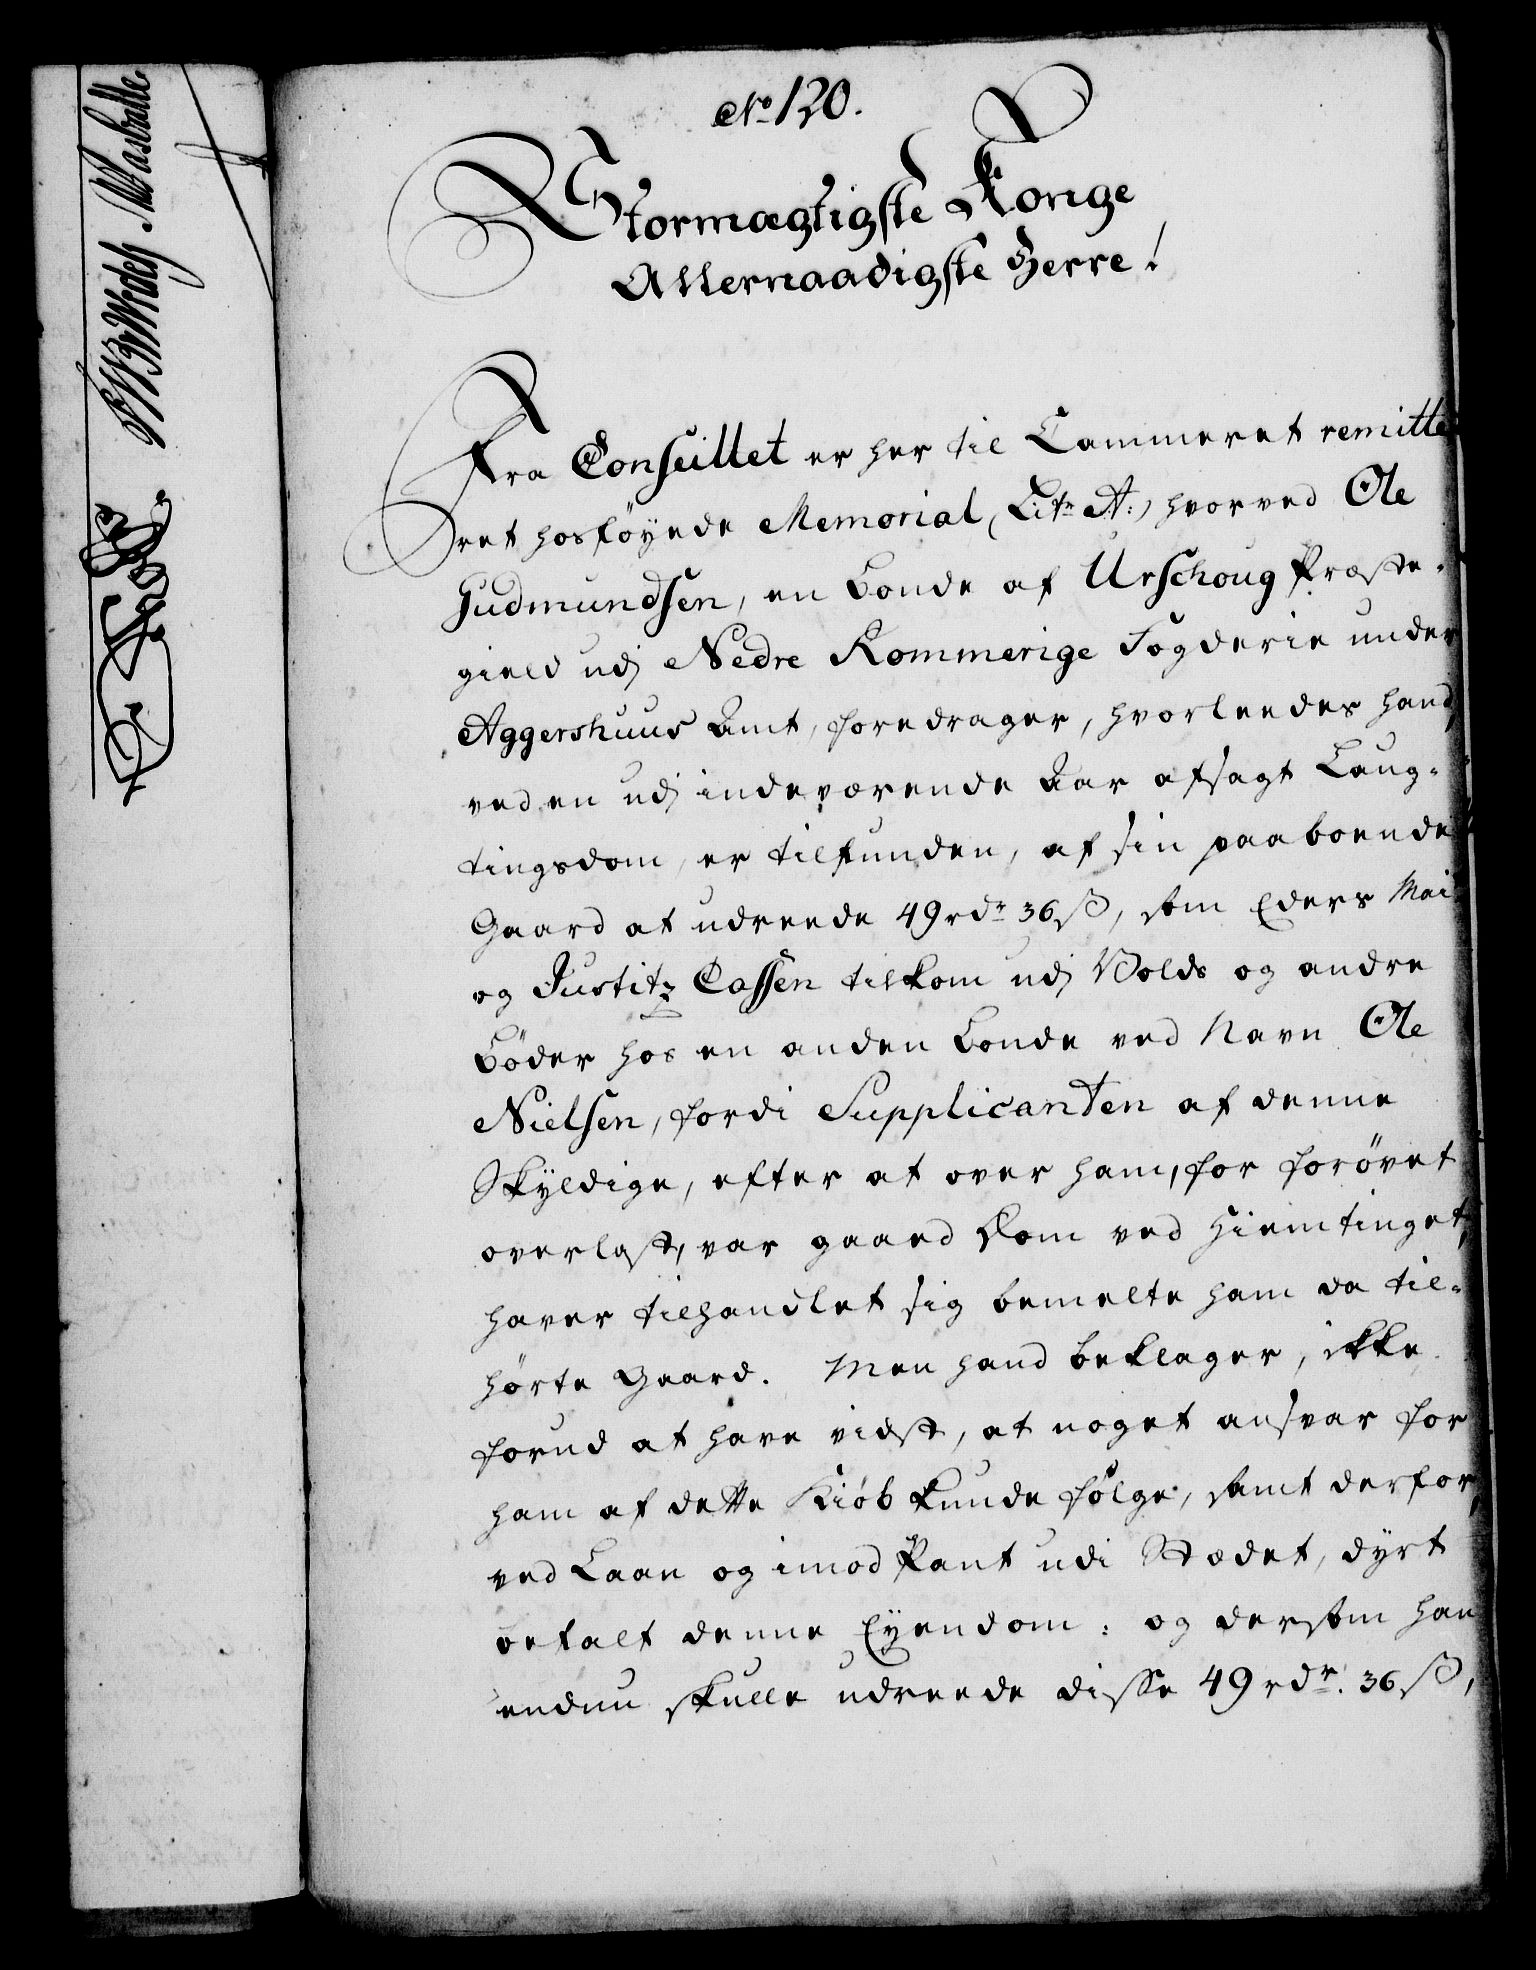 No 120.
Stormægtigste Konge
Allernaadigste Herre!
Fra Conseillet er her til Cammeret remitte
ret hosföyede Memorial, Litr A:, hvorved Ole
Gudmundsen, en Bonde af Urschoug Præste-
gield udj Nedre Rommerige Fogderie under
Aggershuus Amt, foredrager, hvorleedes hand,
ved en udj indeværende Aar afsagt Laug-
tingsdom, er tilfunden, af sin paaboende
Gaard at udreede 49 rdr 36 ß, som Eders Mai
og Justitz Cassen tilkom udj Volds og andre
Böder hos en anden Bonde ved Navn Ole
Nielsen, fordi Supplicanten af denne
Skyldige, efter at over ham, for forövet
overlast, var gaaed Dom ved Hiemtinget,
haver tilhandlet sig bemelte ham da til-
hörte Gaard. Men hand beklager, ikke
forud at have vidst, at noget ansvar for
ham af dette Kiöb kunde fölge, samt derfor,
ved Laan og imod Pant udi Stædet, dyrt
betalt denne Eyendom: og dersom han
endnu skulle udreede disse 49 rdr. 36 ß,